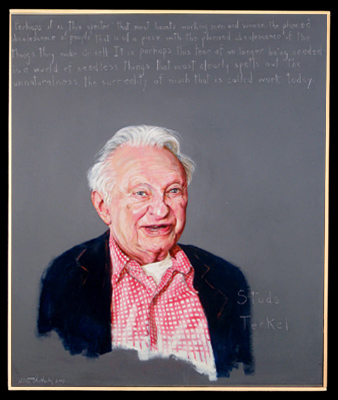 Perhaps it is this specter that most haunts working men and women: the planned
obsolescence of people that is of a piece with the planned obsolescence of the
things they make. Or sell. It is perhaps this fear of no longer being needed
in a world of needless things that most clearly spells out the
unnaturalness, the surreality of much that is called work today.
Studs
Terkel